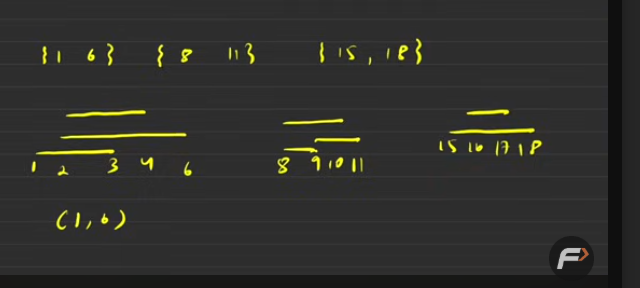 {1 6} {8 11} {15, 18}
1 2 3 4 6 8 9 10 11 15 16 17 18
(1, 6)